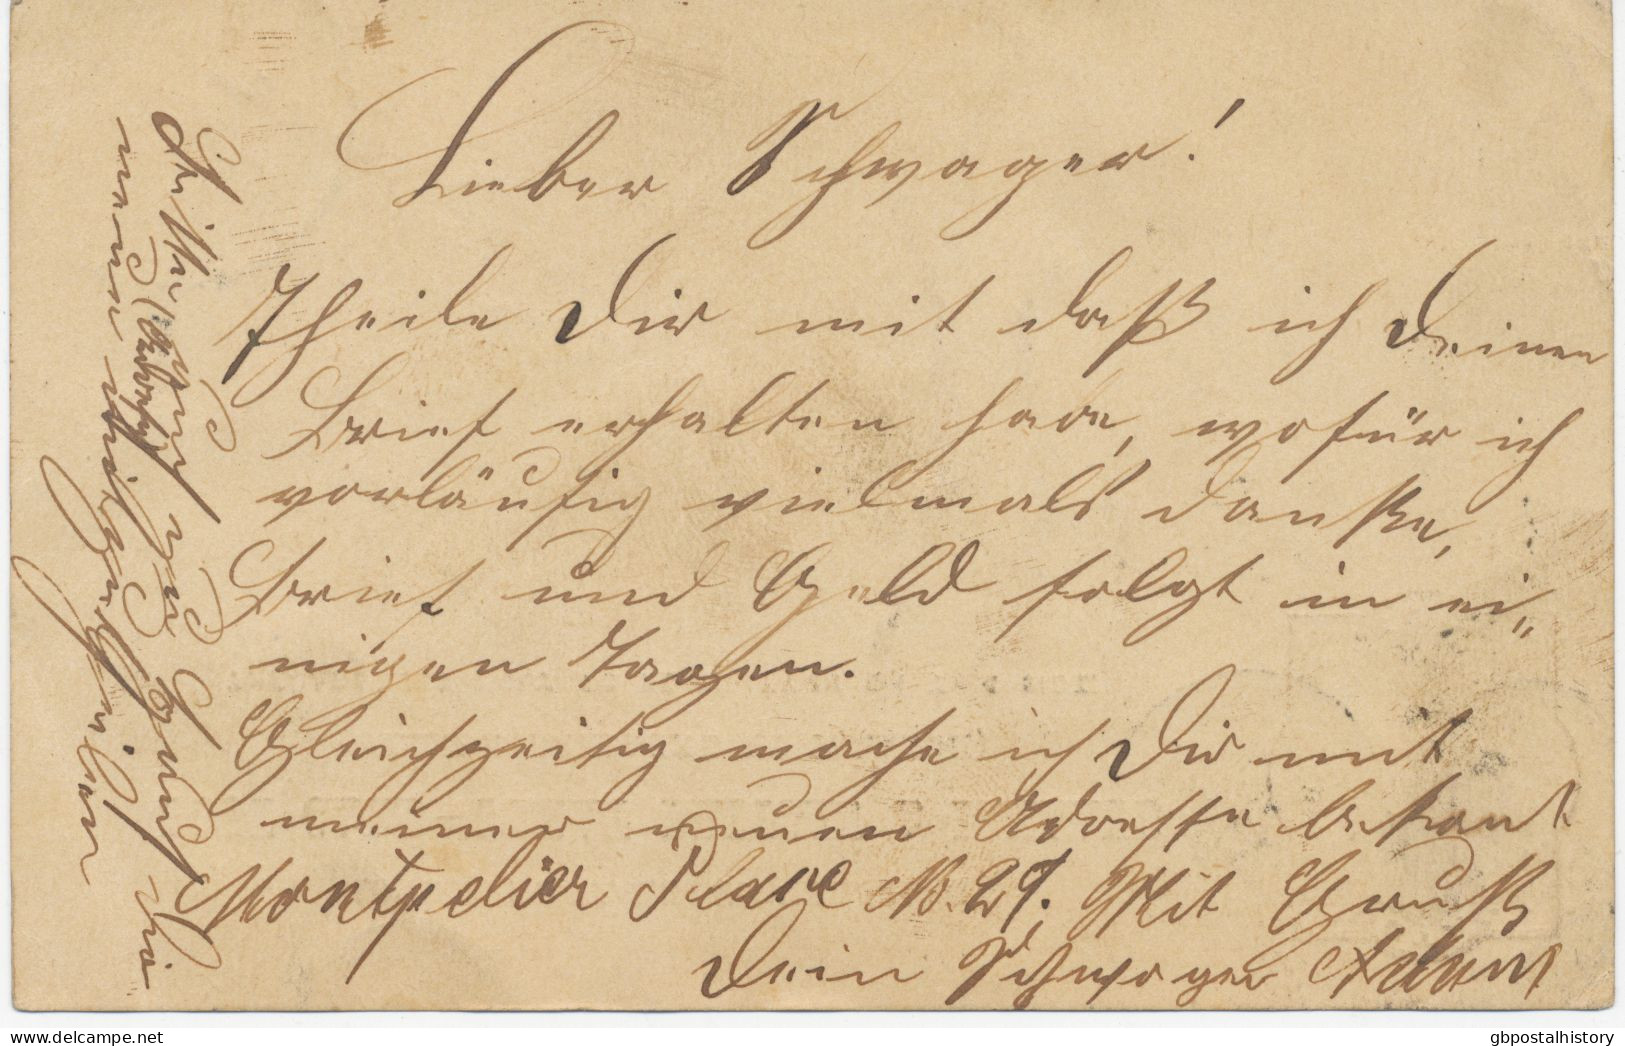 Lieber Schwager!
Theile Dir mit daß ich Deinen
Brief erhalten habe, wofür ich
vorläufig vielmals danke,
Brief und Geld folgt in ei„
nigen Tagen.
Gleichzeitig mache ich Dir mit
meiner neuen Adresse bekant
Montpelier Place N. 29. Mit Gruß
Dein Schwager Adam
Bitte
Adresse
© Delcampe.net
gbpostalhistory